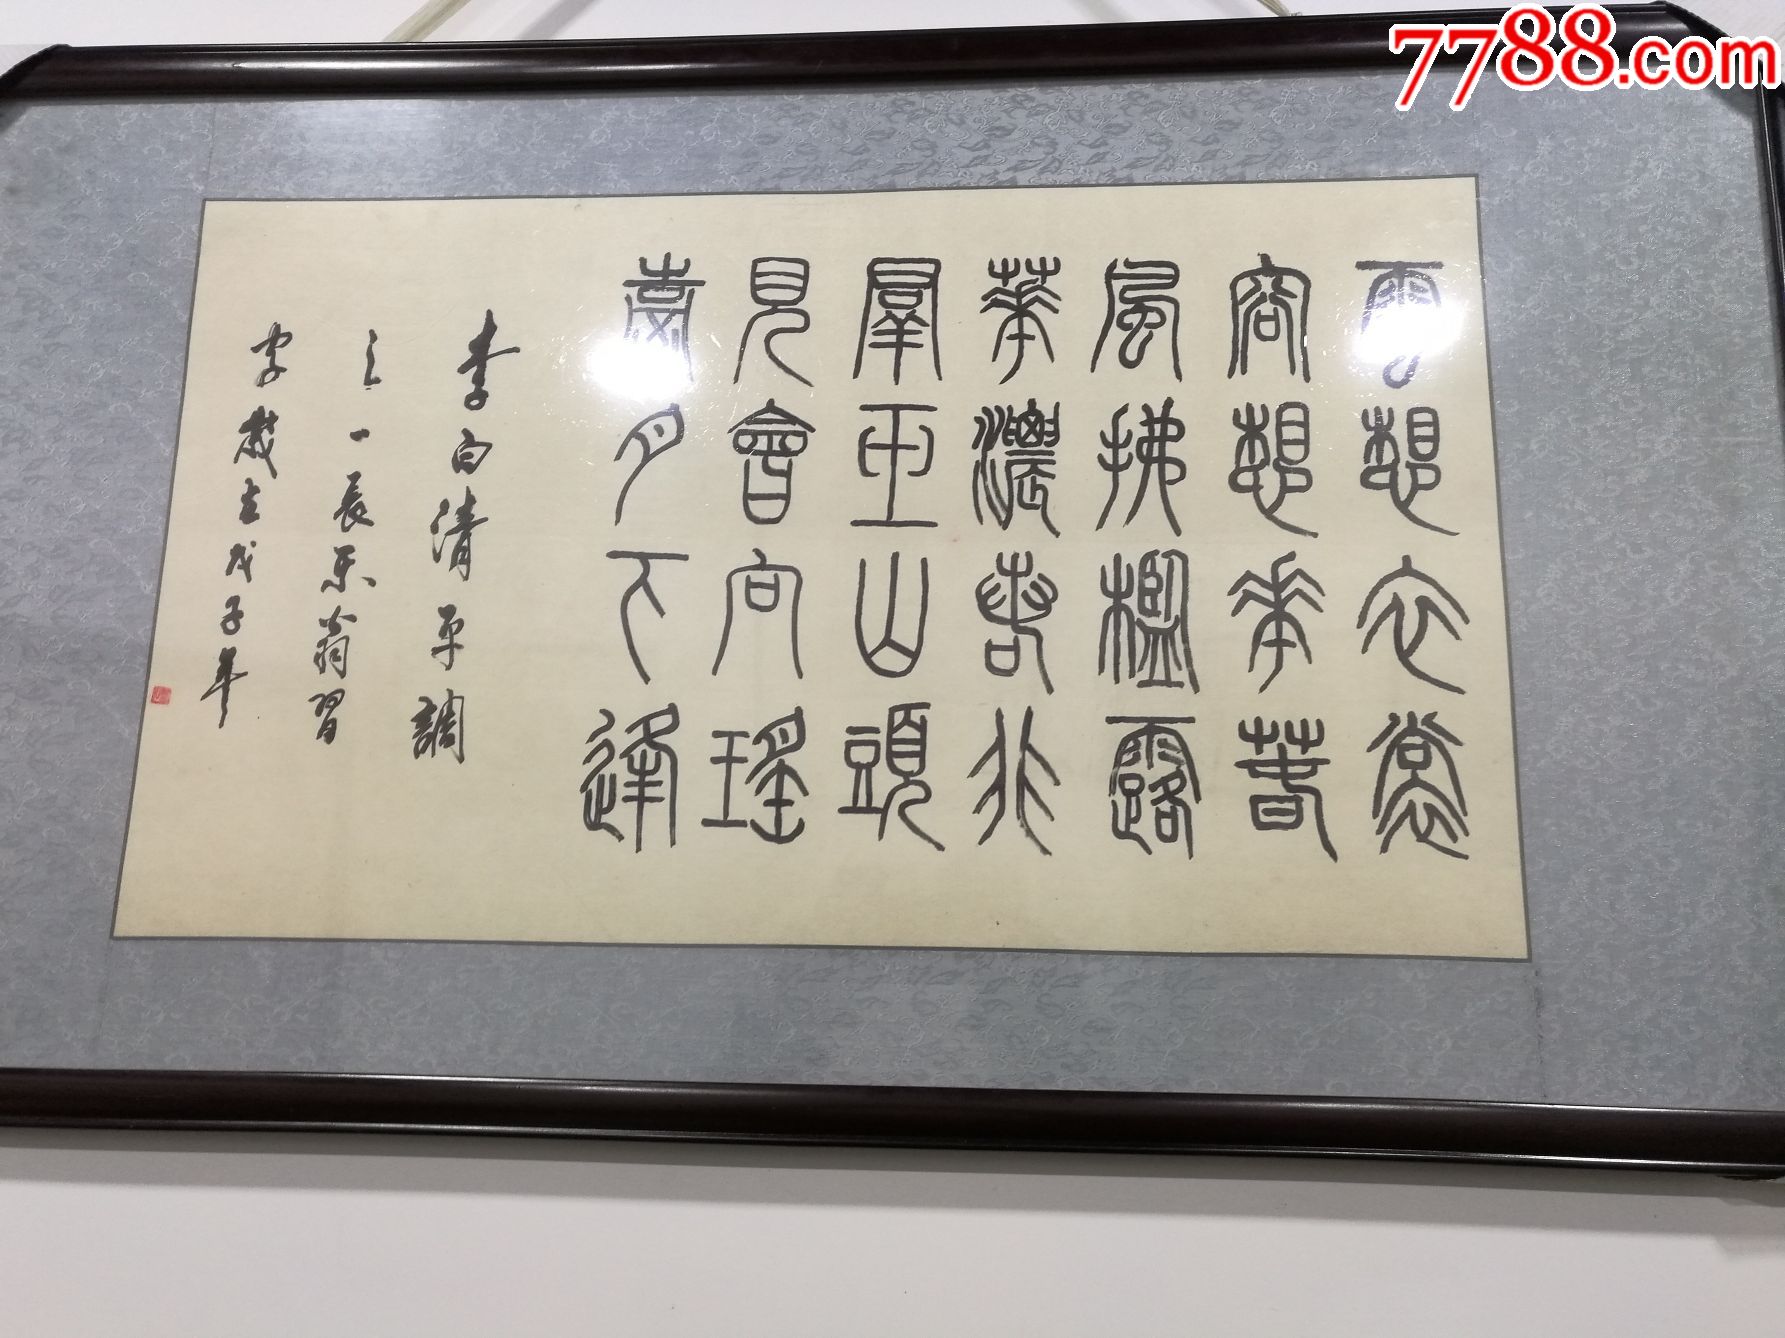 雲想衣裳
容想華春
風拂檻露
華濃若非
羣玉山頭
見會向瑤
臺月下逢
李白清平調
之一長樂翁習
字歲在戊子年
7788.com